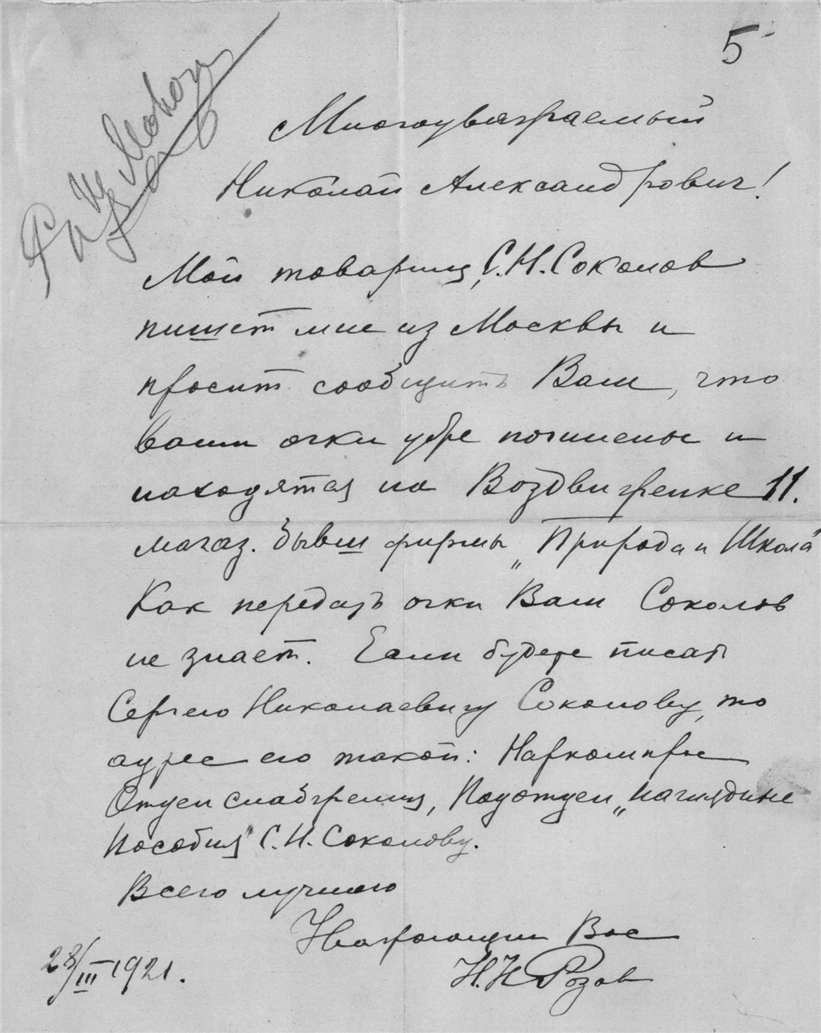 5
Многоуважаемый
Николай Александрович!
Мой товарищ, С.Н. Соколов
пишет мне из Москвы и
просит сообщить Вам, что
ваши очки уже починены и
находятся на Воздвиженке 11.
магаз. бывш фирмы „Природа и Школа"
Как передать очки Вам Соколов
не знает. Если будете писать
Сергею Николаевичу Соколову, то
адрес его такой: Наркомпрос
Отдел снабжения, Подотдел „наглядные
Пособия" С.Н. Соколову.
Всего лучшего
Уважающий Вас
Н.Н. Розов
28/III 1921.